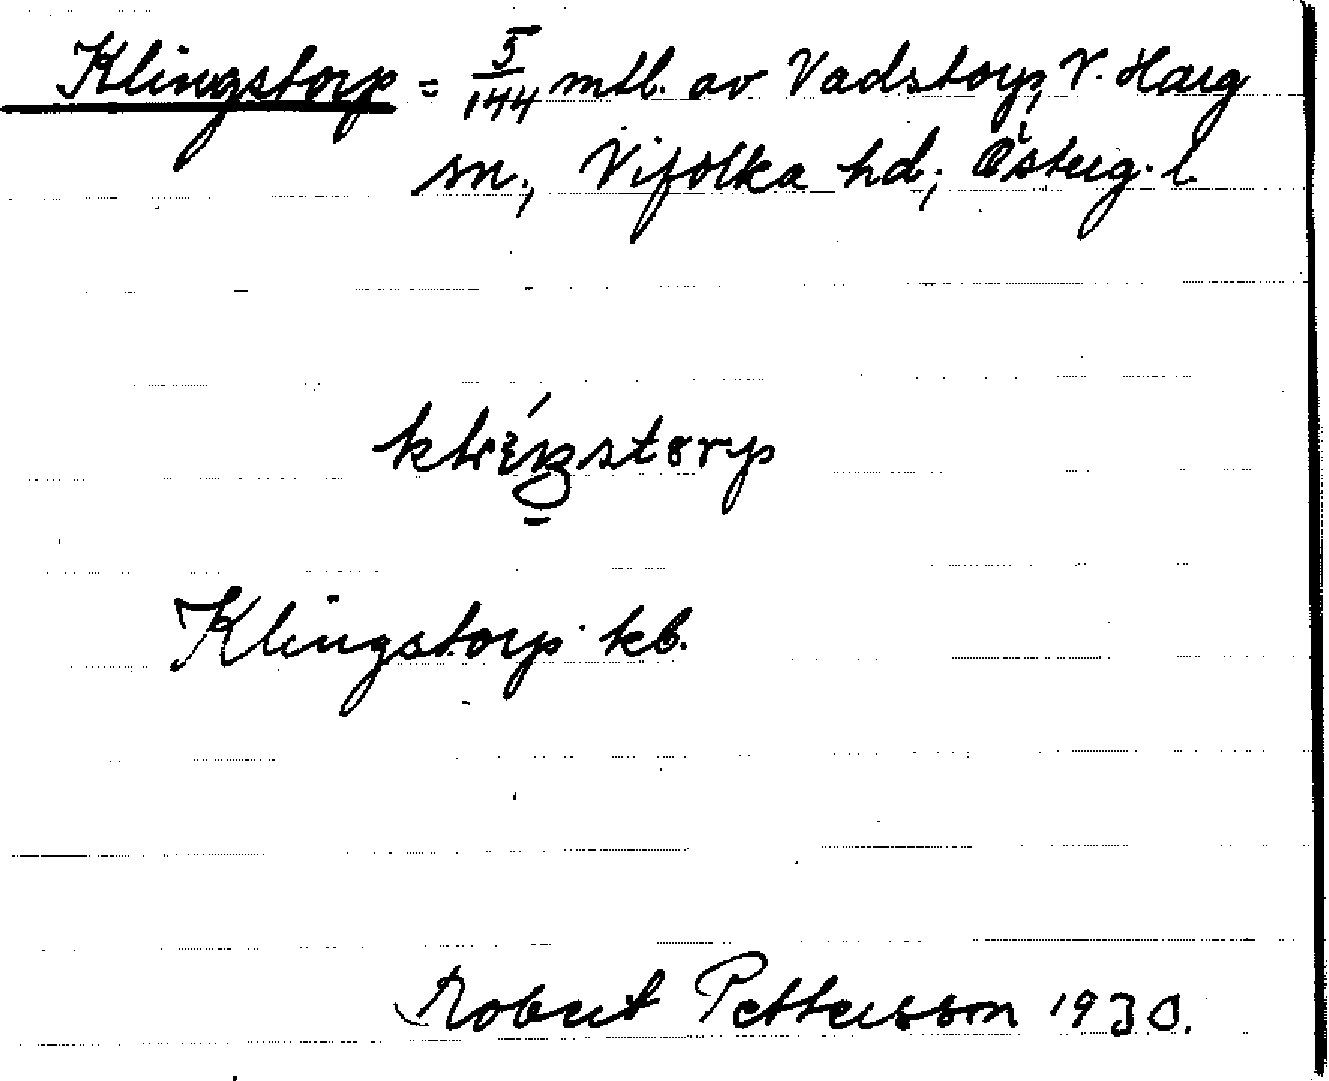 Klingstorp = 5/144 mtl. av Vadstorp, V. Harg
sn., Vifolka hd; Österg. l
Klingstorp kb.
Robert Pettersson 1930.